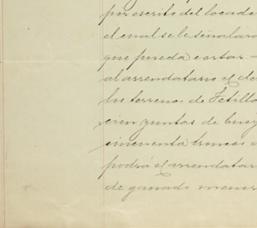 por escrito del locado
el cual se le señalará
que pueda cortar -
al arrendatario el de
los terrenos de Tetilla
cien yuntas de buey
cincuenta troncos
podrá el arrendatar
de ganado menor